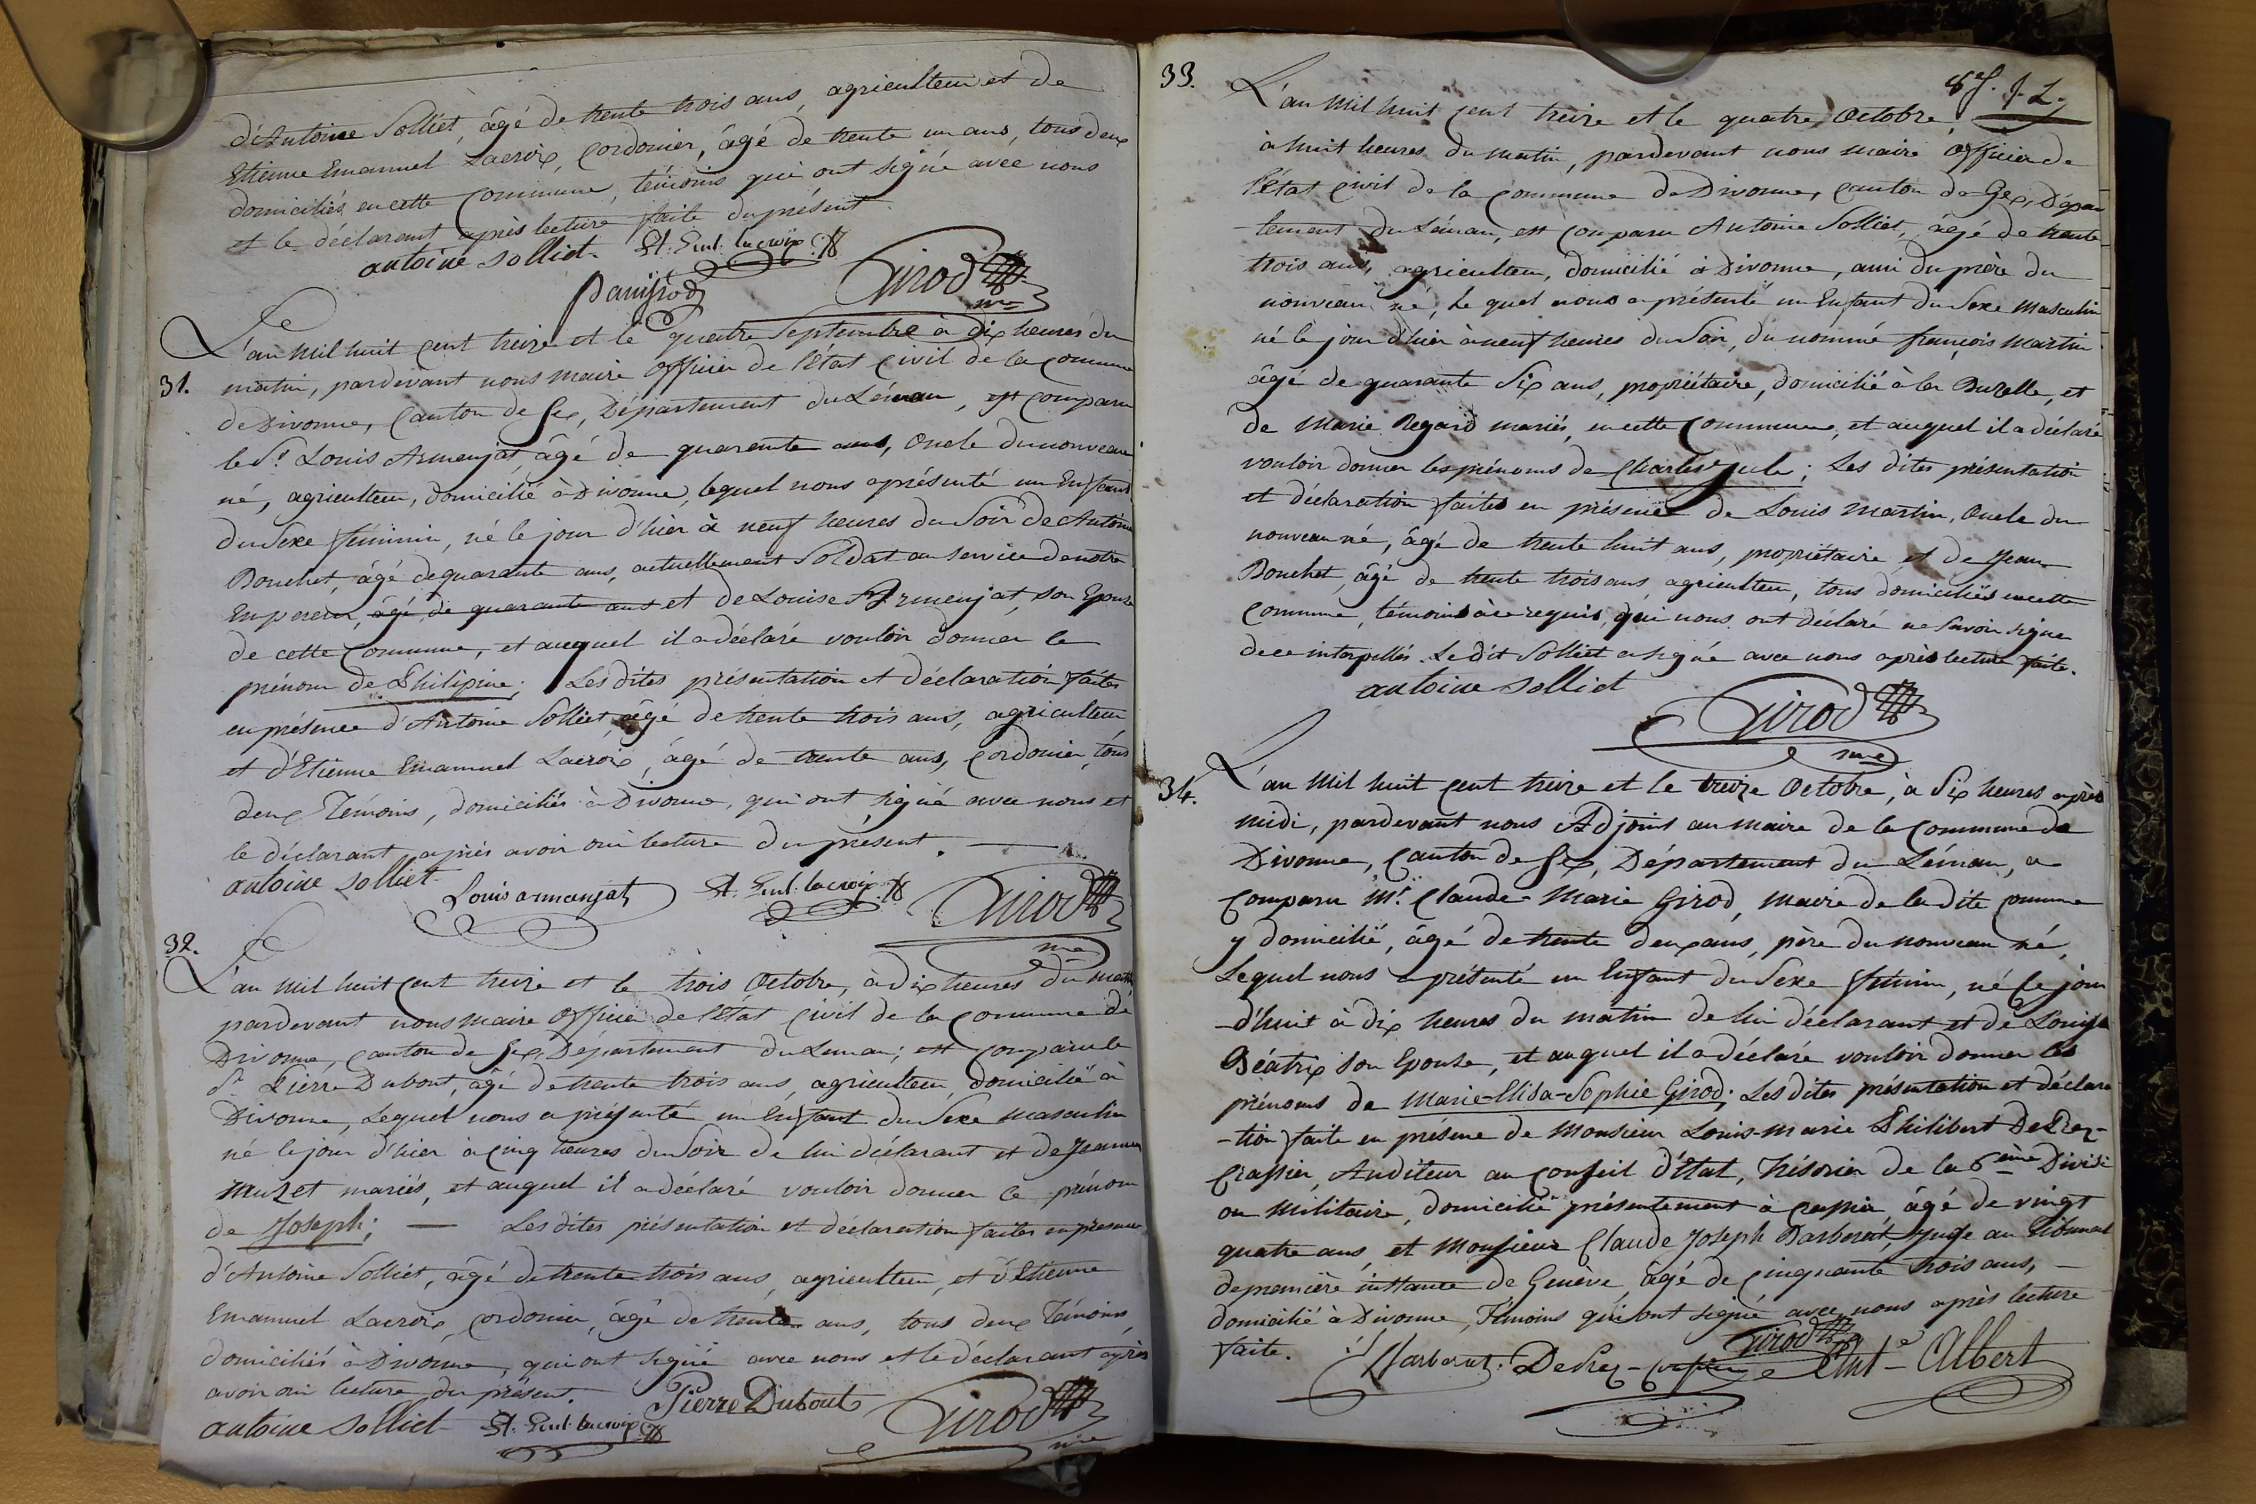 d'Antoine Solliet, âgé de trente trois ans, agriculteur et de
Etienne Emanuel Lacroix, Cordonier, âgé de trente un ans, tous deux
domiciliés en cette Commune, témoins qui ont signé avec nous
et le déclarant après lecture faite du présent.
antoine solliet. Et. Eml. lacroix
Girod
me
31.
L'an mil huit cent treize et le quatre Septembre à dix heures du
matin, pardevant nous maire officier de l'État Civil de la commune
de Divonne, Canton de Gex, Département du Léman, est comparu
le Sr. Louis Armenjat, âgé de quarente ans, Oncle du nouveau
né, agriculteur, domicilié à Divonne, lequel nous a présenté un Enfant
du Sexe féminin, né le jour d'hier à neuf heures du Soir de Antoine
Bouchet, âgé de quarante ans, actuellement Soldat au service de notre
Empereur, âgé de quarante ans et de Louise Armenjat, son Epouse
de cette Commune, et auquel il a déclaré vouloir donner le
prénom de Philipine; Les dites présentation et déclaration faites
en présence d'Antoine Solliet, âgé de trente trois ans, agriculteur
et d'Etienne Emanuel Lacroix, âgé de trente ans, Cordonier, tous
deux Témoins, domiciliés à Divonne, qui ont signé avec nous et
le déclarant après avoir oui lecture du présent.
antoine solliet
Louis armanjat Et. Eml. lacroix Girod
me
32.
L'an mil huit cent treize et le trois Octobre, à dix heures du matin
pardevant nous maire officier de l'État Civil de la Commune de
Divonne, canton de Gex, Département du Leman; est comparu le
Sr. Pierre Dubout, âgé de trente trois ans, agriculteur, domicilié à
Divonne, Lequel nous a présenté un Enfant du Sexe masculin
né le jour d'hier à cinq heures du Soir de lui déclarant et de Jeanne
Muzet mariés, et auquel il a déclaré vouloir donner le prénom
de Joseph; — Les dites présentation et déclaration faites en présence
d'Antoine Solliet, âgé de trente trois ans, agriculteur, et d'Etienne
Emanuel Lacroix, cordonier, âgé de trente ans, tous deux Témoins,
domiciliés à Divonne, qui ont signé avec nous et le déclarant après
avoir oui lecture du présent.
Pierre Dubout
antoine solliet Et. Eml. lacroix Girod
me
33.
L'an mil huit cent treize et le quatre Octobre,
à huit heures du matin, pardevant nous maire officier de
l'état civil de la Commune de Divonne, canton de Gex, Dépar
-tement du Léman, est comparu Antoine Solliet, âgé de trente
trois ans, agriculteur, domicilié à Divonne, ami du père du
nouveau né, Le quel nous a présenté un Enfant du Sexe masculin
né le jour d'hier à neuf heures du Soir, du nommé françois martin
âgé de quarante Six ans, propriétaire, domicilié à la Duzelle, et
de Marie Regard mariés, en cette Commune, et auquel il a déclaré
vouloir donner les prénoms de Charles Jule; Les dites présentation
et déclaration faites en présence de Louis Martin, Oncle du
nouveau né, âgé de trente huit ans, propriétaire et de Jean
Bouchet, âgé de trente trois ans, agriculteur, tous domiciliés en cette
Commune, témoins à ce requis, qui nous ont déclaré ne Savoir signer
de ce interpellés. Le dit Solliet a signé avec nous après lecture faite.
antoine solliet
Girod
me
34.
L'an Mil huit cent treize et le treize Octobre, à Six heures après
midi, pardevant nous Adjoint au maire de la Commune de
Divonne, Canton de Gex, Département du Léman, a
Comparu Mr. Claude-Marie Girod, maire de la dite Commune
y domicilié, âgé de trente deux ans, père du nouveau né,
Lequel nous a présenté un Enfant du Sexe féminin, né ce jour
-d'huit à dix heures du matin de lui déclarant et de Louise
Béatrix son Epouse, et auquel il a déclaré vouloir donner les
prénoms de Marie-Elisa-Sophie Girod; Les dites présentation et déclara
-tion faite en présence de Monsieur Louis-marie Philibert DePrez-
Crassier, Auditeur au Conseil d'État, Trésorier de la 6ème Divisi
on militaire, domicilié présentement à Crassier, âgé de vingt
quatre ans, et Monsieur Claude Joseph Darberat, Juge au Tribunal
de première instance de Genève, âgé de Cinquante trois ans, —
domicilié à Divonne, Témoins qui ont signé avec nous après lecture
faite. Girod
DePrez-Crassier Albert